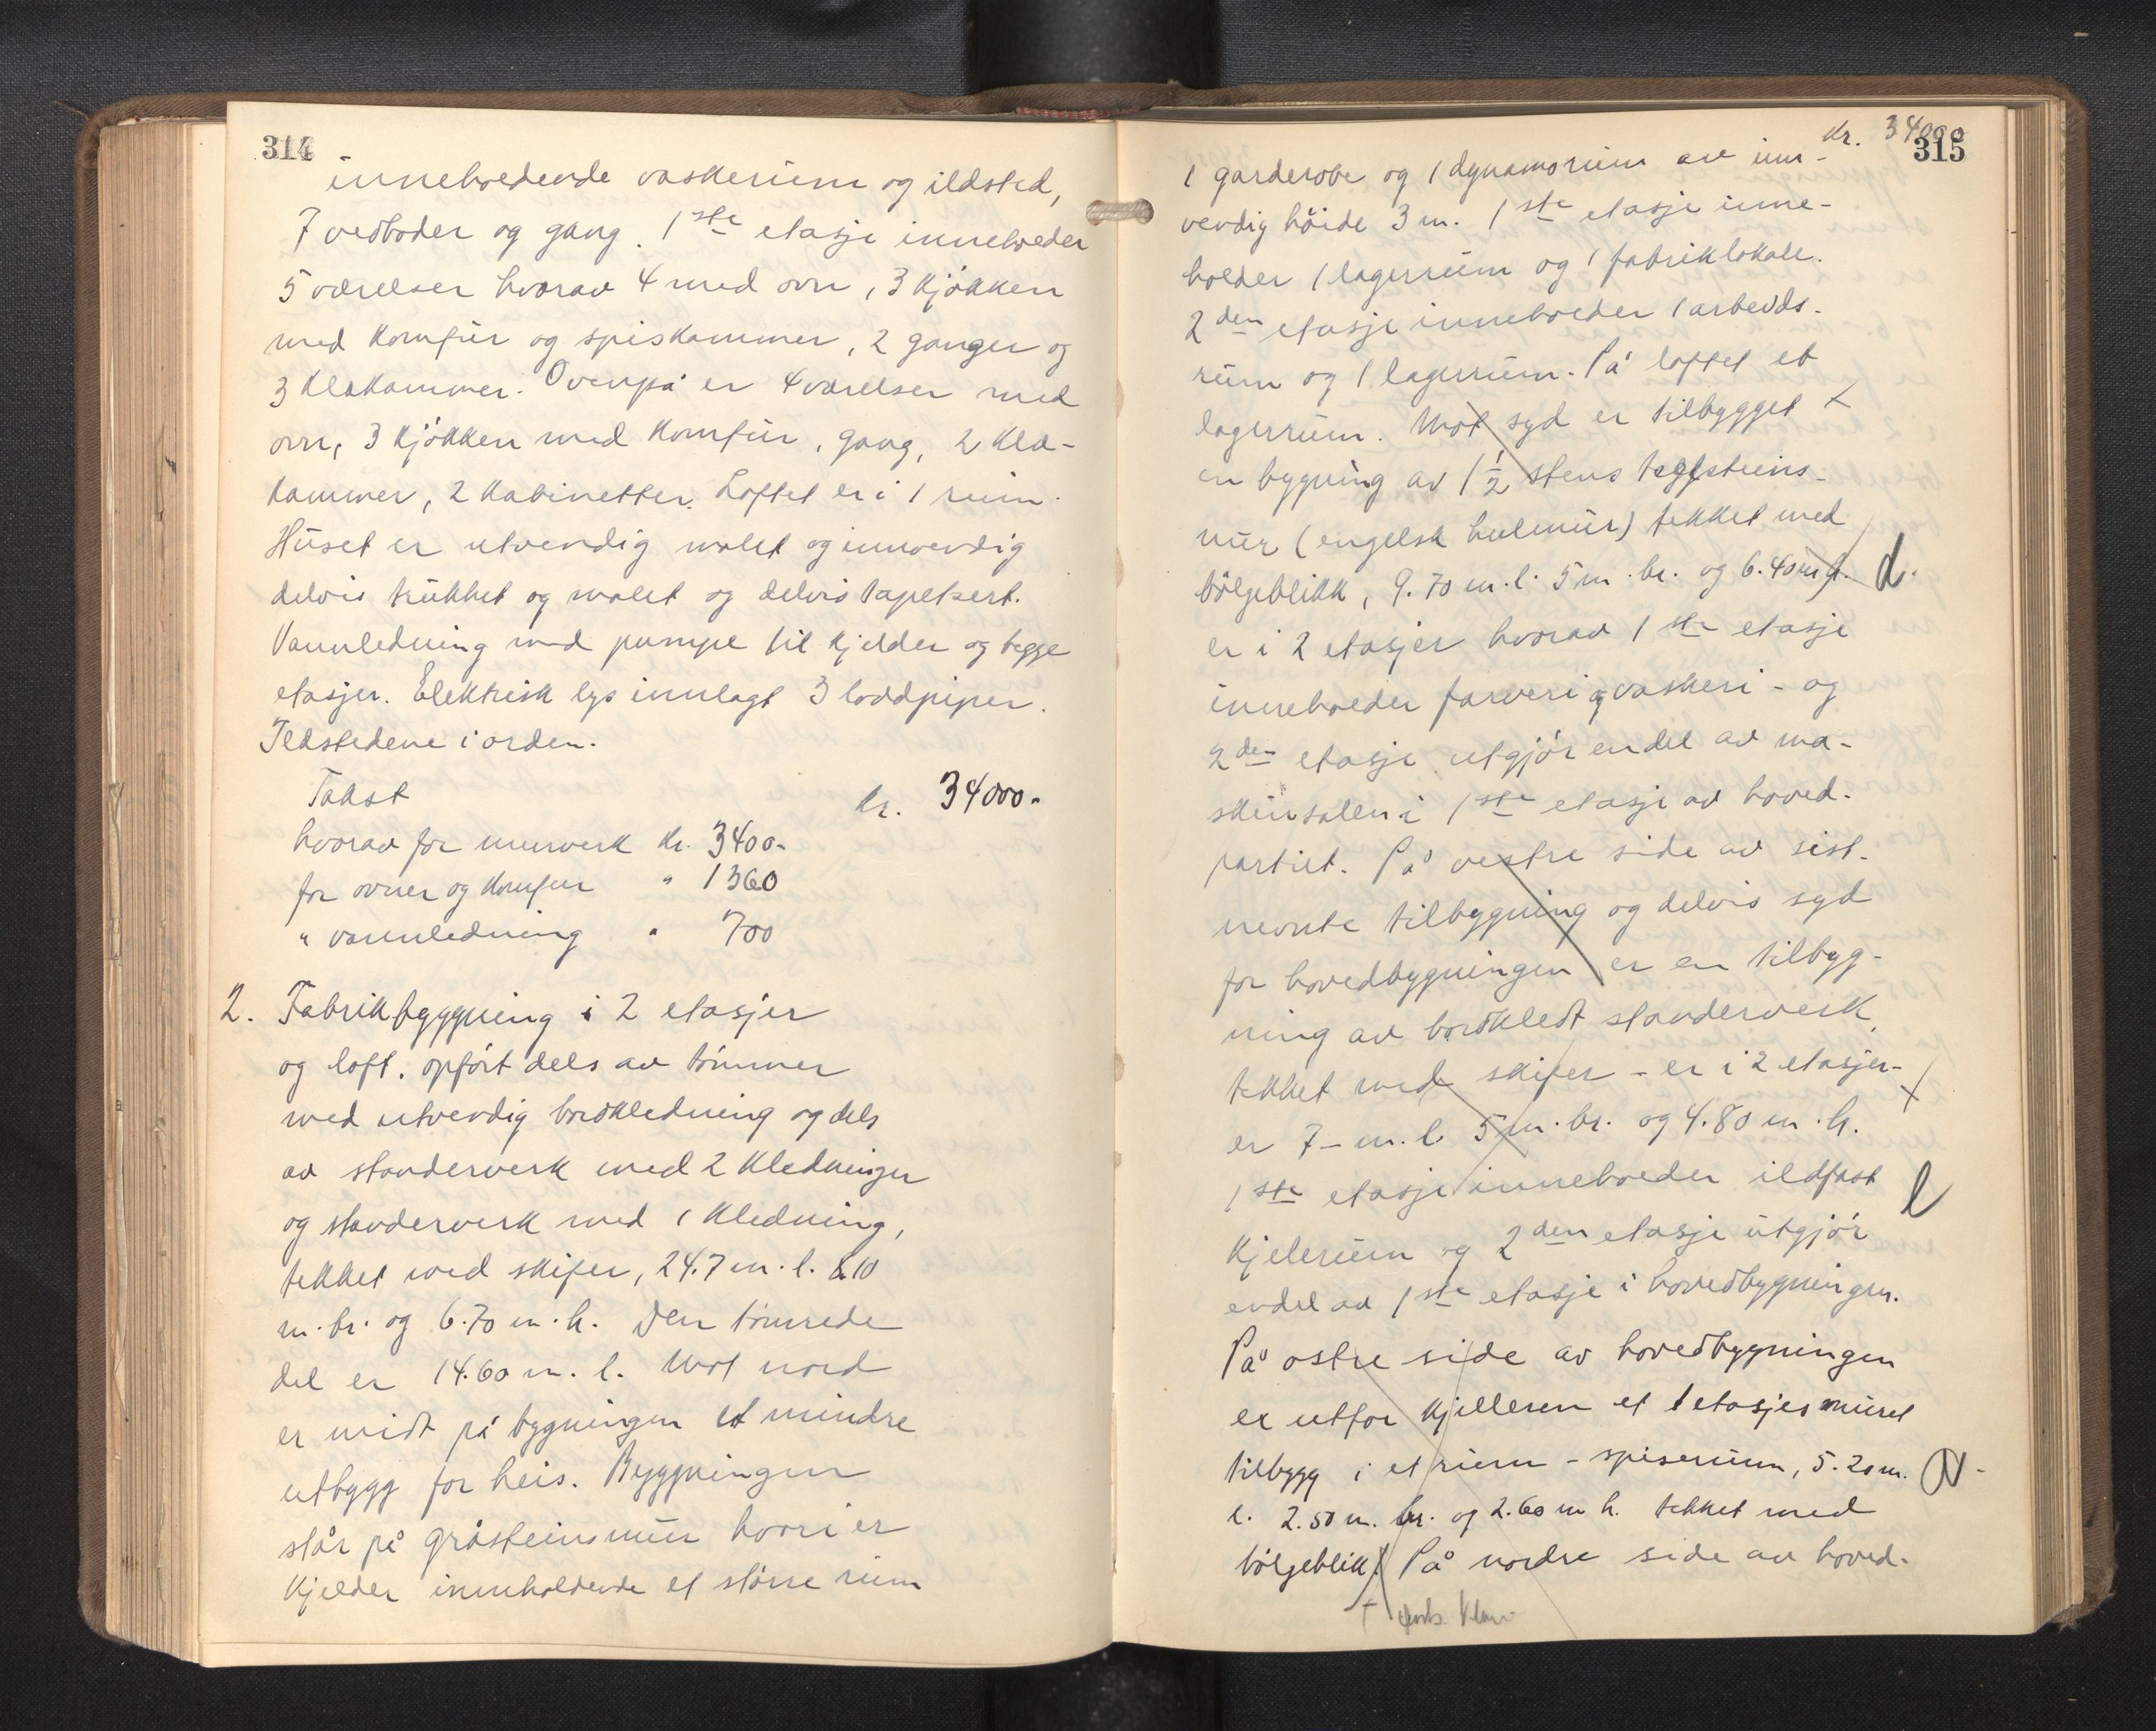 314
inneholdende vaskerum og ildsted,
7 vedboder og gang. 1ste etasje inneholder
5 værelser hvorav 4 med ovn, 3 kjøkken
med komfur og spiskammer, 2 ganger og
3 klækammer. Ovenpå er 4 værelser med
ovn, 3 kjøkken med komfur, gang, 2 klæ-
kammer, 2 kabinetter. Loftet er i 1 rum.
Huset er utvendig malet og innvendig
delvis trukket og malet og delvis tapetsert.
Vannledning med pumpe til kjelder og begge
etasjer. Elektrisk lys innlagt 3 loddpiper.
Ildstedene i orden.
Takst kr. 34000.-
hvorav for murverk kr. 3400.-
for ovner og komfur " 1360
" vannledning " 700
2. Fabrikbyggning i 2 etasjer
og loft. opført dels av tømmer
med utvendig bordkledning og dels
av standerverk med 2 kledninger
og standerverk med 1 kledning,
tekket med skifer, 24.7 m. l. 8.10
m. br. og 6.70 m. h. Den tømrede
del er 14.60 m. l. Mot nord
er midt på bygningen et mindre
utbygg for heis. Byggningen
står på gråsteinsmur hvori er
kjelder innholdende et større rum
kr. 34000
315
1 garderobe og 1 dynamorum av inn-
vendig høide 3 m. 1ste etasje inne-
holder 1 lagerrum og 1 fabriklokale.
2den etasje inneholder 1 arbeids-
rum og 1 lagerrum. På loftet et
lagerrum. Mot syd er tilbygget
en bygning av 1 1/2 stens teglsteins-
mur (engelsk hulmur) tekket med
bølgeblikk, 9.70 m. l. 5 m. br. og 6.40 m h.
er i 2 etasjer hvorav 1ste etasje
inneholder farveri og vaskeri - og
2den etasje utgjør en del av ma-
skinsalen i 1ste etasje av hoved-
partiet. På vestre side av sist-
nevnte tilbygning og delvis syd
for hovedbygningen er en tilbyg-
ning av bordkledt standerverk,
tekket med skifer - er i 2 etasjer -
er 7 - m. l. 5 m. br. og 4.80 m. h.
1ste etasje inneholder ildfast
kjelerum og 2den etasje utgjør
endel av 1ste etasje i hovedbygningen.
På østre side av hovedbygningen
er utfor kjelleren et 1 etasjes muret
tilbygg i et rum - spiserum, 5.20 m.
l. 2.50 m. br. og 2.60 m h. tekket med
bølgeblik. På nordre side av hoved-